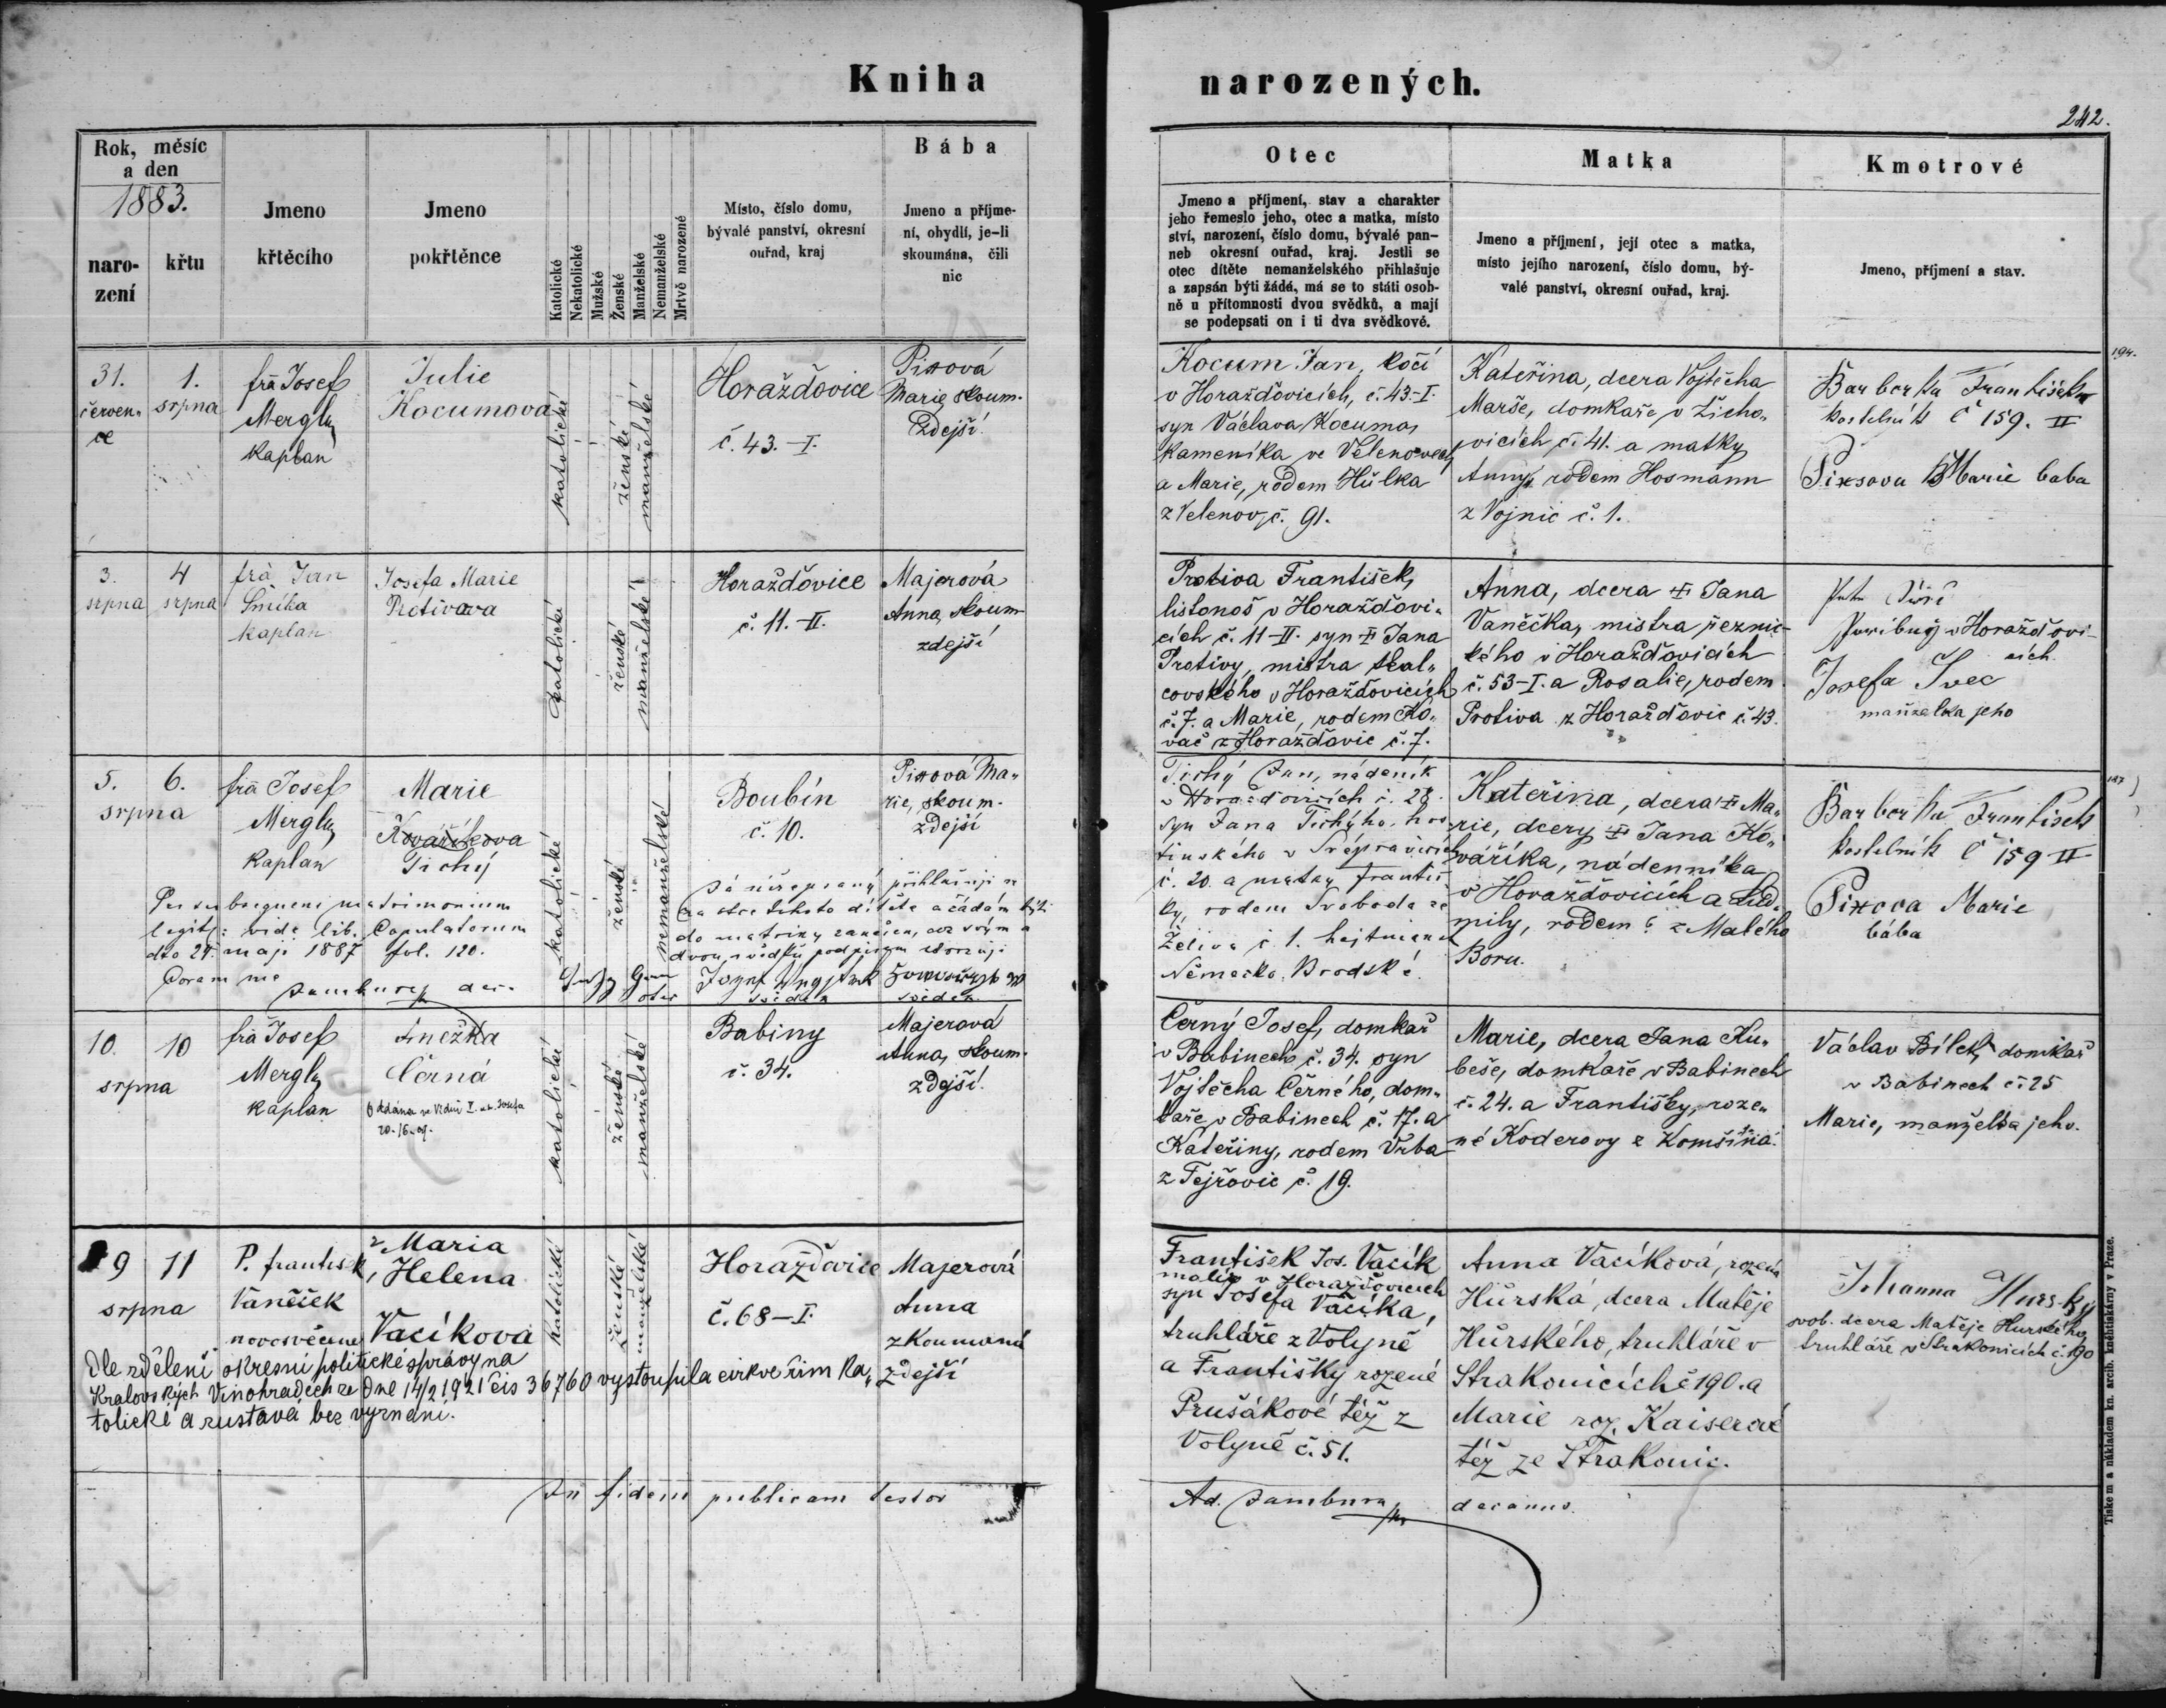 Kniha narozených.
242.
Rok, měsíc
a den
1883.
naro-
zení
křtu
Jmeno
křtěcího
Jmeno
pokřtěnce
Katolické
Nekatolické
Mužské
Ženské
Manželské
Nemanželské
Mrtvě narozené
Místo, číslo domu,
bývalé panství, okresní
ouřad, kraj
Bába
Jmeno a příjme-
ní, obydlí, je-li
skoumána, čili
nic
Otec
Jmeno a příjmení, stav a charakter
jeho řemeslo jeho, otec a matka, místo
ství, narození, číslo domu, bývalé pan-
neb okresní ouřad, kraj. Jestli se
otec dítěte nemanželského přihlašuje
a zapsán býti žádá, má se to státi osob-
ně u přítomnosti dvou svědků, a mají
se podepsati on i ti dva svědkové.
Matka
Jmeno a příjmení, její otec a matka,
místo jejího narození, číslo domu, bý-
valé panství, okresní ouřad, kraj.
Kmotrové
Jmeno, příjmení a stav.
31.
červen-
ce
1.
srpna
frà Josef
Mergl
kaplan
Julie
Kocumova
katolické
ženské
manželské
Horažďovice
č. 43.-I.
Pixová
Marie, skoum.
zdejší
Kocum Jan, kočí
v Horažďovicích, č. 43.-I.
syn Václava Kocuma,
kameníka ve Velenovech
a Marie, rodem Hůlka
z Velenov, č. 91.
Kateřina, dcera Vojtěcha
Marše, domkaře v Žicho-
vicích č. 41. a matky
Anny, rodem Hosmann
z Vojnic č. 1.
194.
Barborka František
kostelník č 159. II
Pixsova Marie baba
3.
srpna
4
srpna
frà Jan
Smíha
kaplan
Josefa Marie
Protivova
katolické
ženské
manželské
Horažďovice
č. 11.-II.
Majerová
Anna, skoum
zdejší
Protiva František,
listonoš v Horažďovi-
cích č. 11-II. syn Jana
Protivy, mistra tkal-
covského v Horažďovicích
č. 7. a Marie, rodem Ko-
vač z Horažďovic č. 7.
Anna, dcera Jana
Vaněčka, mistra řeznic-
kého v Horažďovicích
č. 53-I. a Rosalie, rodem
Protiva z Horažďovic č. 43.
v Horažďovi-
cích
Josefa Švec
manželka jeho
5.
srpna
6.
frà Josef
Mergl
kaplan
Marie
Kovaříkova
Tichý
katolické
ženské
nemanželské
Boubín
č. 10.
Pixová Ma-
rie, skoum.
zdejší
Per subsequens matrimonium
legit: vide lib. Copulatorum
dto 24. maji 1887 fol. 120.
Coram me
Jambura dec.
Já nížepsaný přihlašuji se
za otce tohoto dítěte a žádám býti
do matriky zanešen, což svým a
dvou svědků podpisem stvrzuji
otec
svědek
svědek
Tichý Jan, nádeník
v Horažďovicích č. 28.
syn Jana Tichýho, hos-
tinského v
č. 20. a matky Františ-
ky, rodem Svoboda ze
Želiva č. 1. hejtmans.
Německo Brodské.
Kateřina, dcera Ma-
rie, dcery Jana Ko-
vaříka, nádenníka
v Horažďovicích a Lud-
mily, rodem ? z Malého
Boru.
197
Barborka František
kostelník č 159 II
Pixova Marie
bába
10.
srpna
10
frà Josef
Mergl
kaplan
Anežka
Černá
Oddána ve Vídni I. u sv. Josefa
20./6. 09.
katolické
ženské
manželské
Babiny
č. 34.
Majerová
Anna, skoum.
zdejší.
Černý Josef, domkař
v Babinech č. 34. syn
Vojtěcha Černého, dom-
kaře v Babinech č. 17. a
Kateřiny, rodem Vrba
z Tejřovic č. 19.
Marie, dcera Jana Ku-
beše, domkaře v Babinech
č. 24. a Františky, roze-
né Koderovy z Komšína.
Václav Bílek domkař
v Babinech č. 25
Marie, manželka jeho.
9
srpna
11
P. František
Vaněček
novosvěcenec
Maria
Helena
Vacíkova
katolické
ženské
manželské
Horažďovice
č. 68-I.
Majerová
Anna
zkoumaná
zdejší
Dle sdělení okresní politické správy na
Královských Vinohradech ze dne 14/2 1921 čís 36760 vystoupila církve řím ka-
tolické a zůstává bez vyznání.
František Jos. Vacík
malíř v Horažďovicích
syn Josefa Vacíka,
truhláře z Volyně
a Františky rozené
Prušákové též z
Volyně č. 51.
Anna Vacíková, rozená
Hůrská, dcera Matěje
Hůrského, truhláře v
Strakonicích č 190. a
Marie roz. Kaiserové
též ze Strakonic.
Johanna Hursky
svob. dcera Matěje Hurského,
truhláře v Strakonicích č. 190
In fidem publicam testor
Ad. Jambura decanus.
Tiskem a nákladem kn. arcib. knehtiskárny v Praze.